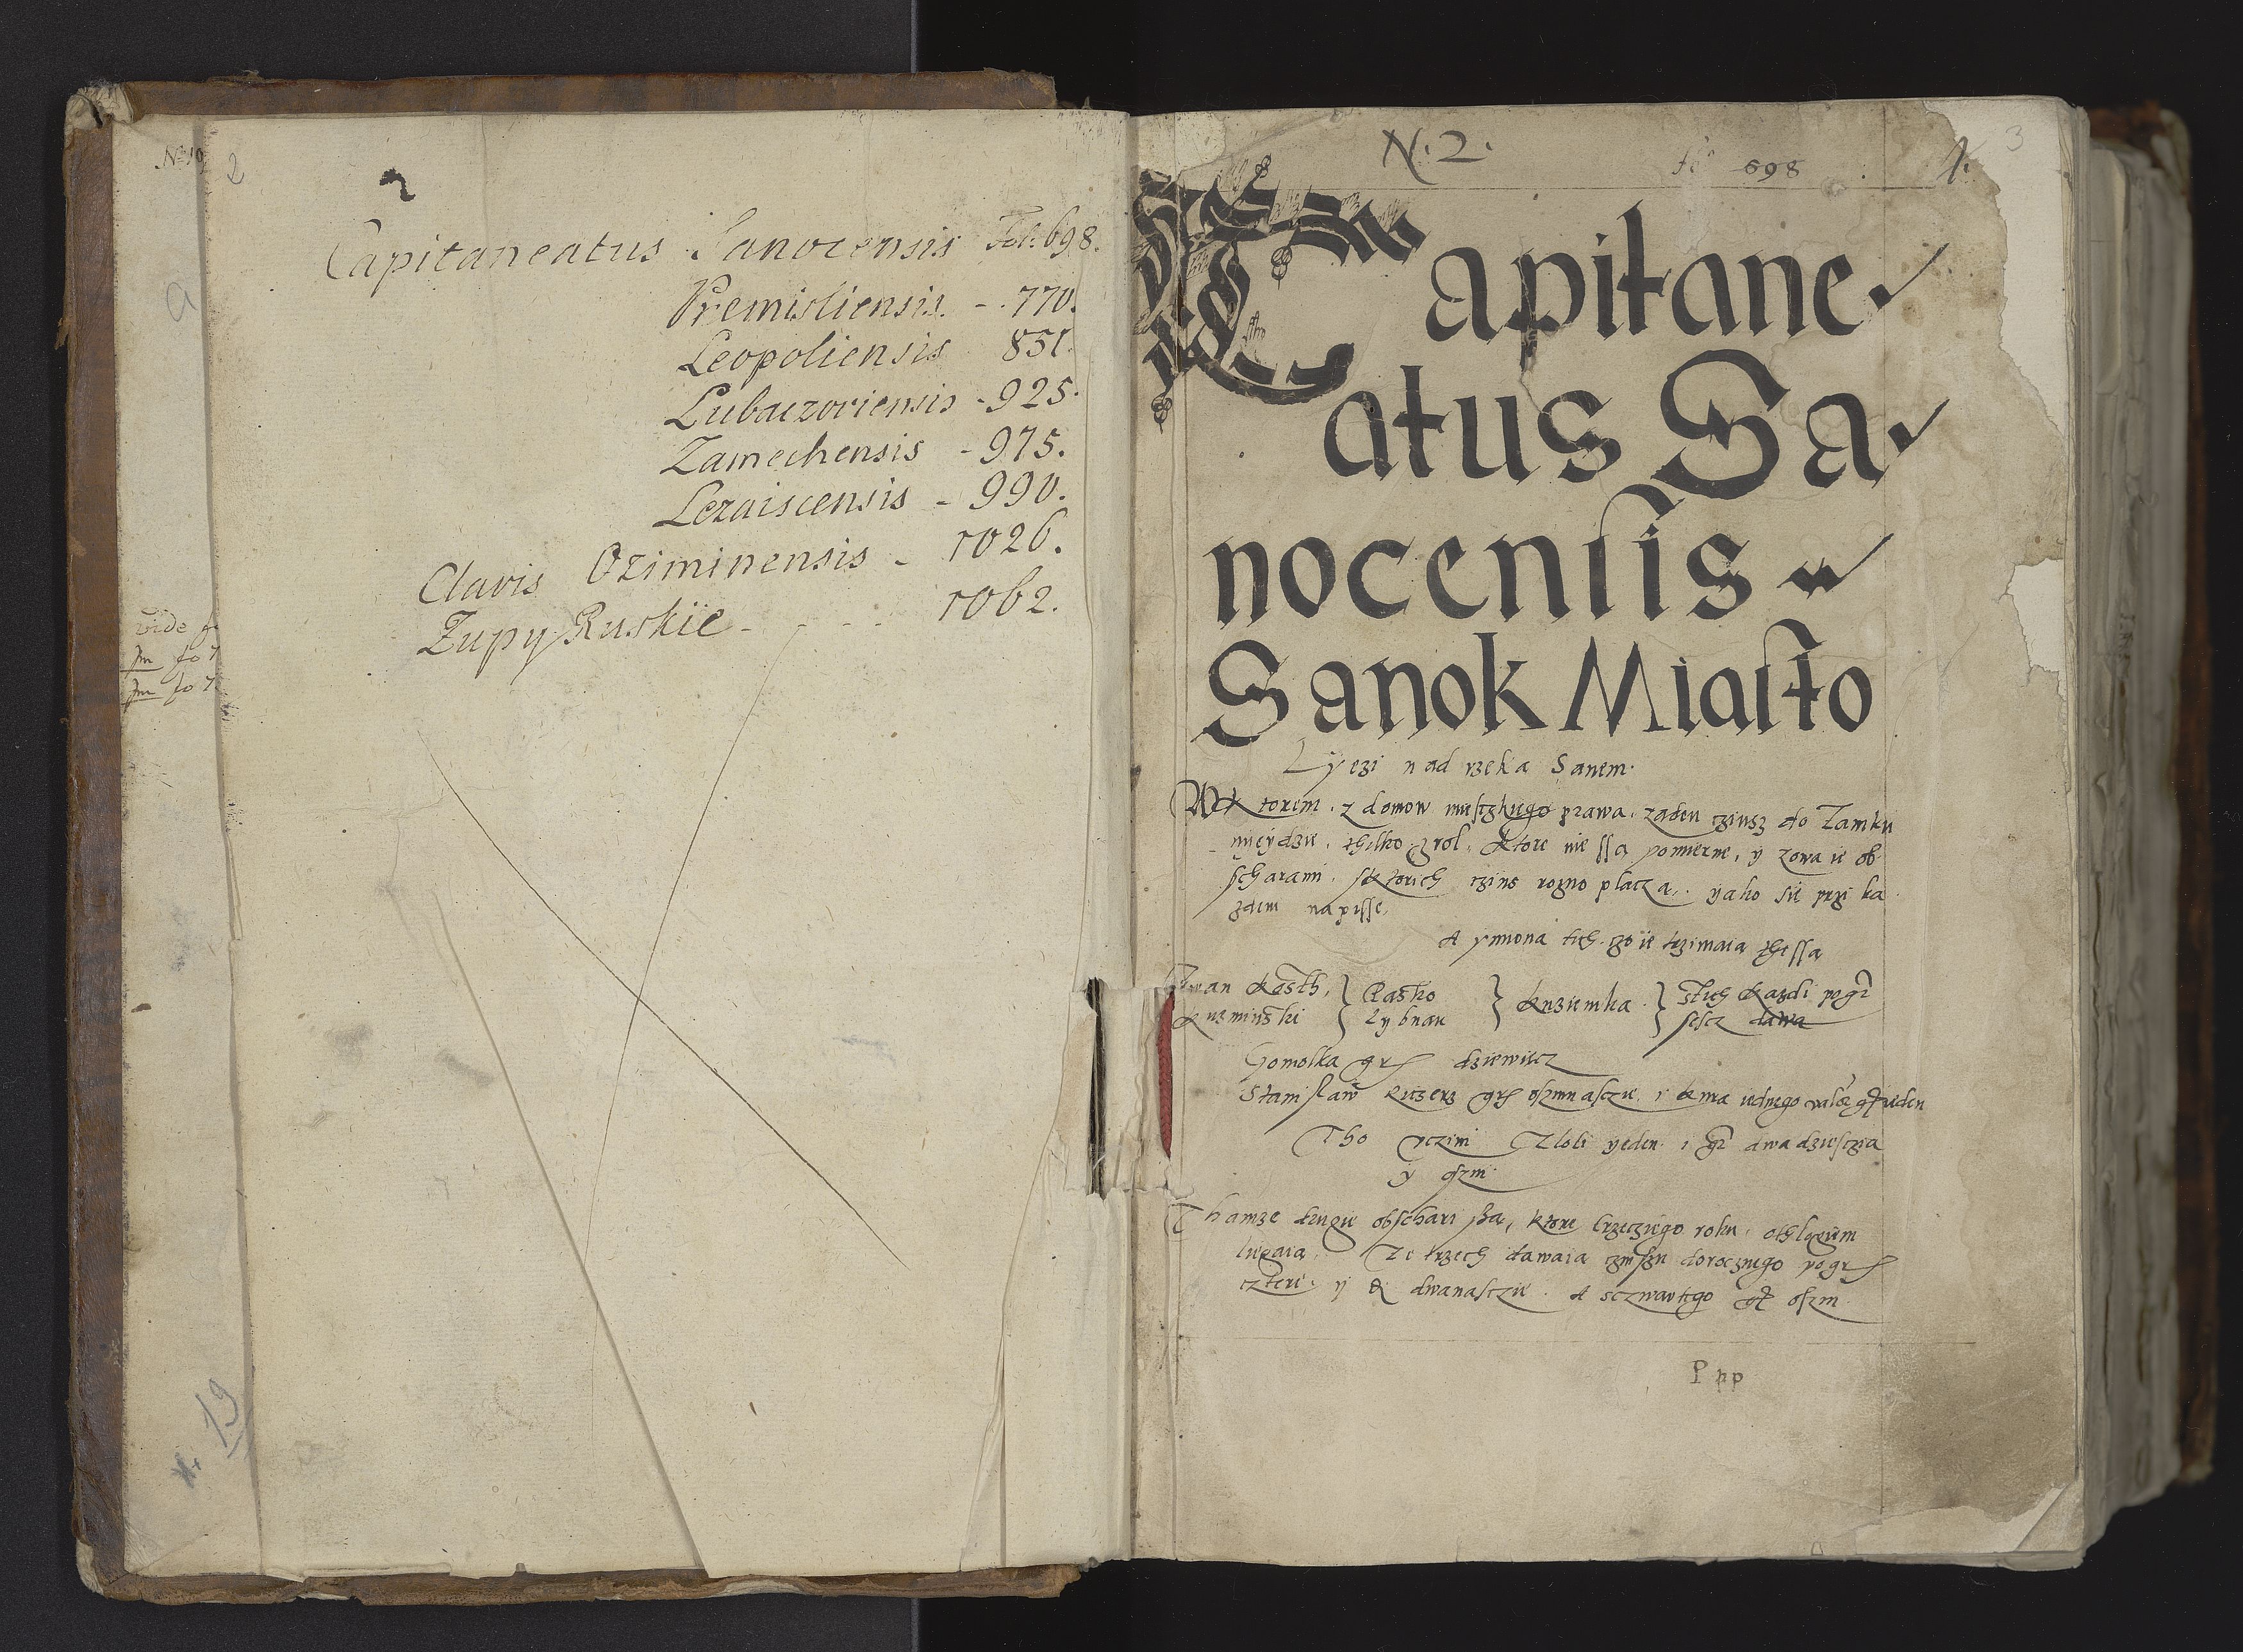 No 10
2
2
Capitaneatus Sanocensis Fol: 698.
Premisliensis. - 770.
Leopoliensis 851.
Lubaczoviensis - 925.
Zamechensis - 975.
Lezaiscensis - 990.
Clavis Oziminensis - 1026.
Zupy Ruskie - - - - 1062.
vide
fo 7
fo 7
19
N. 2.
fo 698
1.
3
Capitane
atus Sa
nocensis
Sanok Miasto
Lyezi nad rzeka Sanem.
Wktorem. z domow mieszkiego prawa. zaden czinsz do Zamku
nyeydzie. thilko zrol. Ktore nie ssa pomierne, y zowa ie ob
scharami. sktorich czins rozno placza. yako sie przi ka
zdem napisse.
A ymiona tich. czo ie trzimaia thessa
Iwan Kosth,
Kuzminski
Pasko
Rybnau
Kuziemka.
stich Kazdi po gr
sescz dawa
Gomolka gr dziewiecz
Stanislaw gr osmnasczie. i iednego gr ieden
Tho vczini Zloti yeden. i gr dwadziesczia
y osm.
Thamze drugie obschari sa, ktore trzecziego roku. othlogiem
liegaia. Ze trzech dawaia czinszu dorocznego po gr
czteri. y dwanasczie. A sczwartego gr osm.
P pp